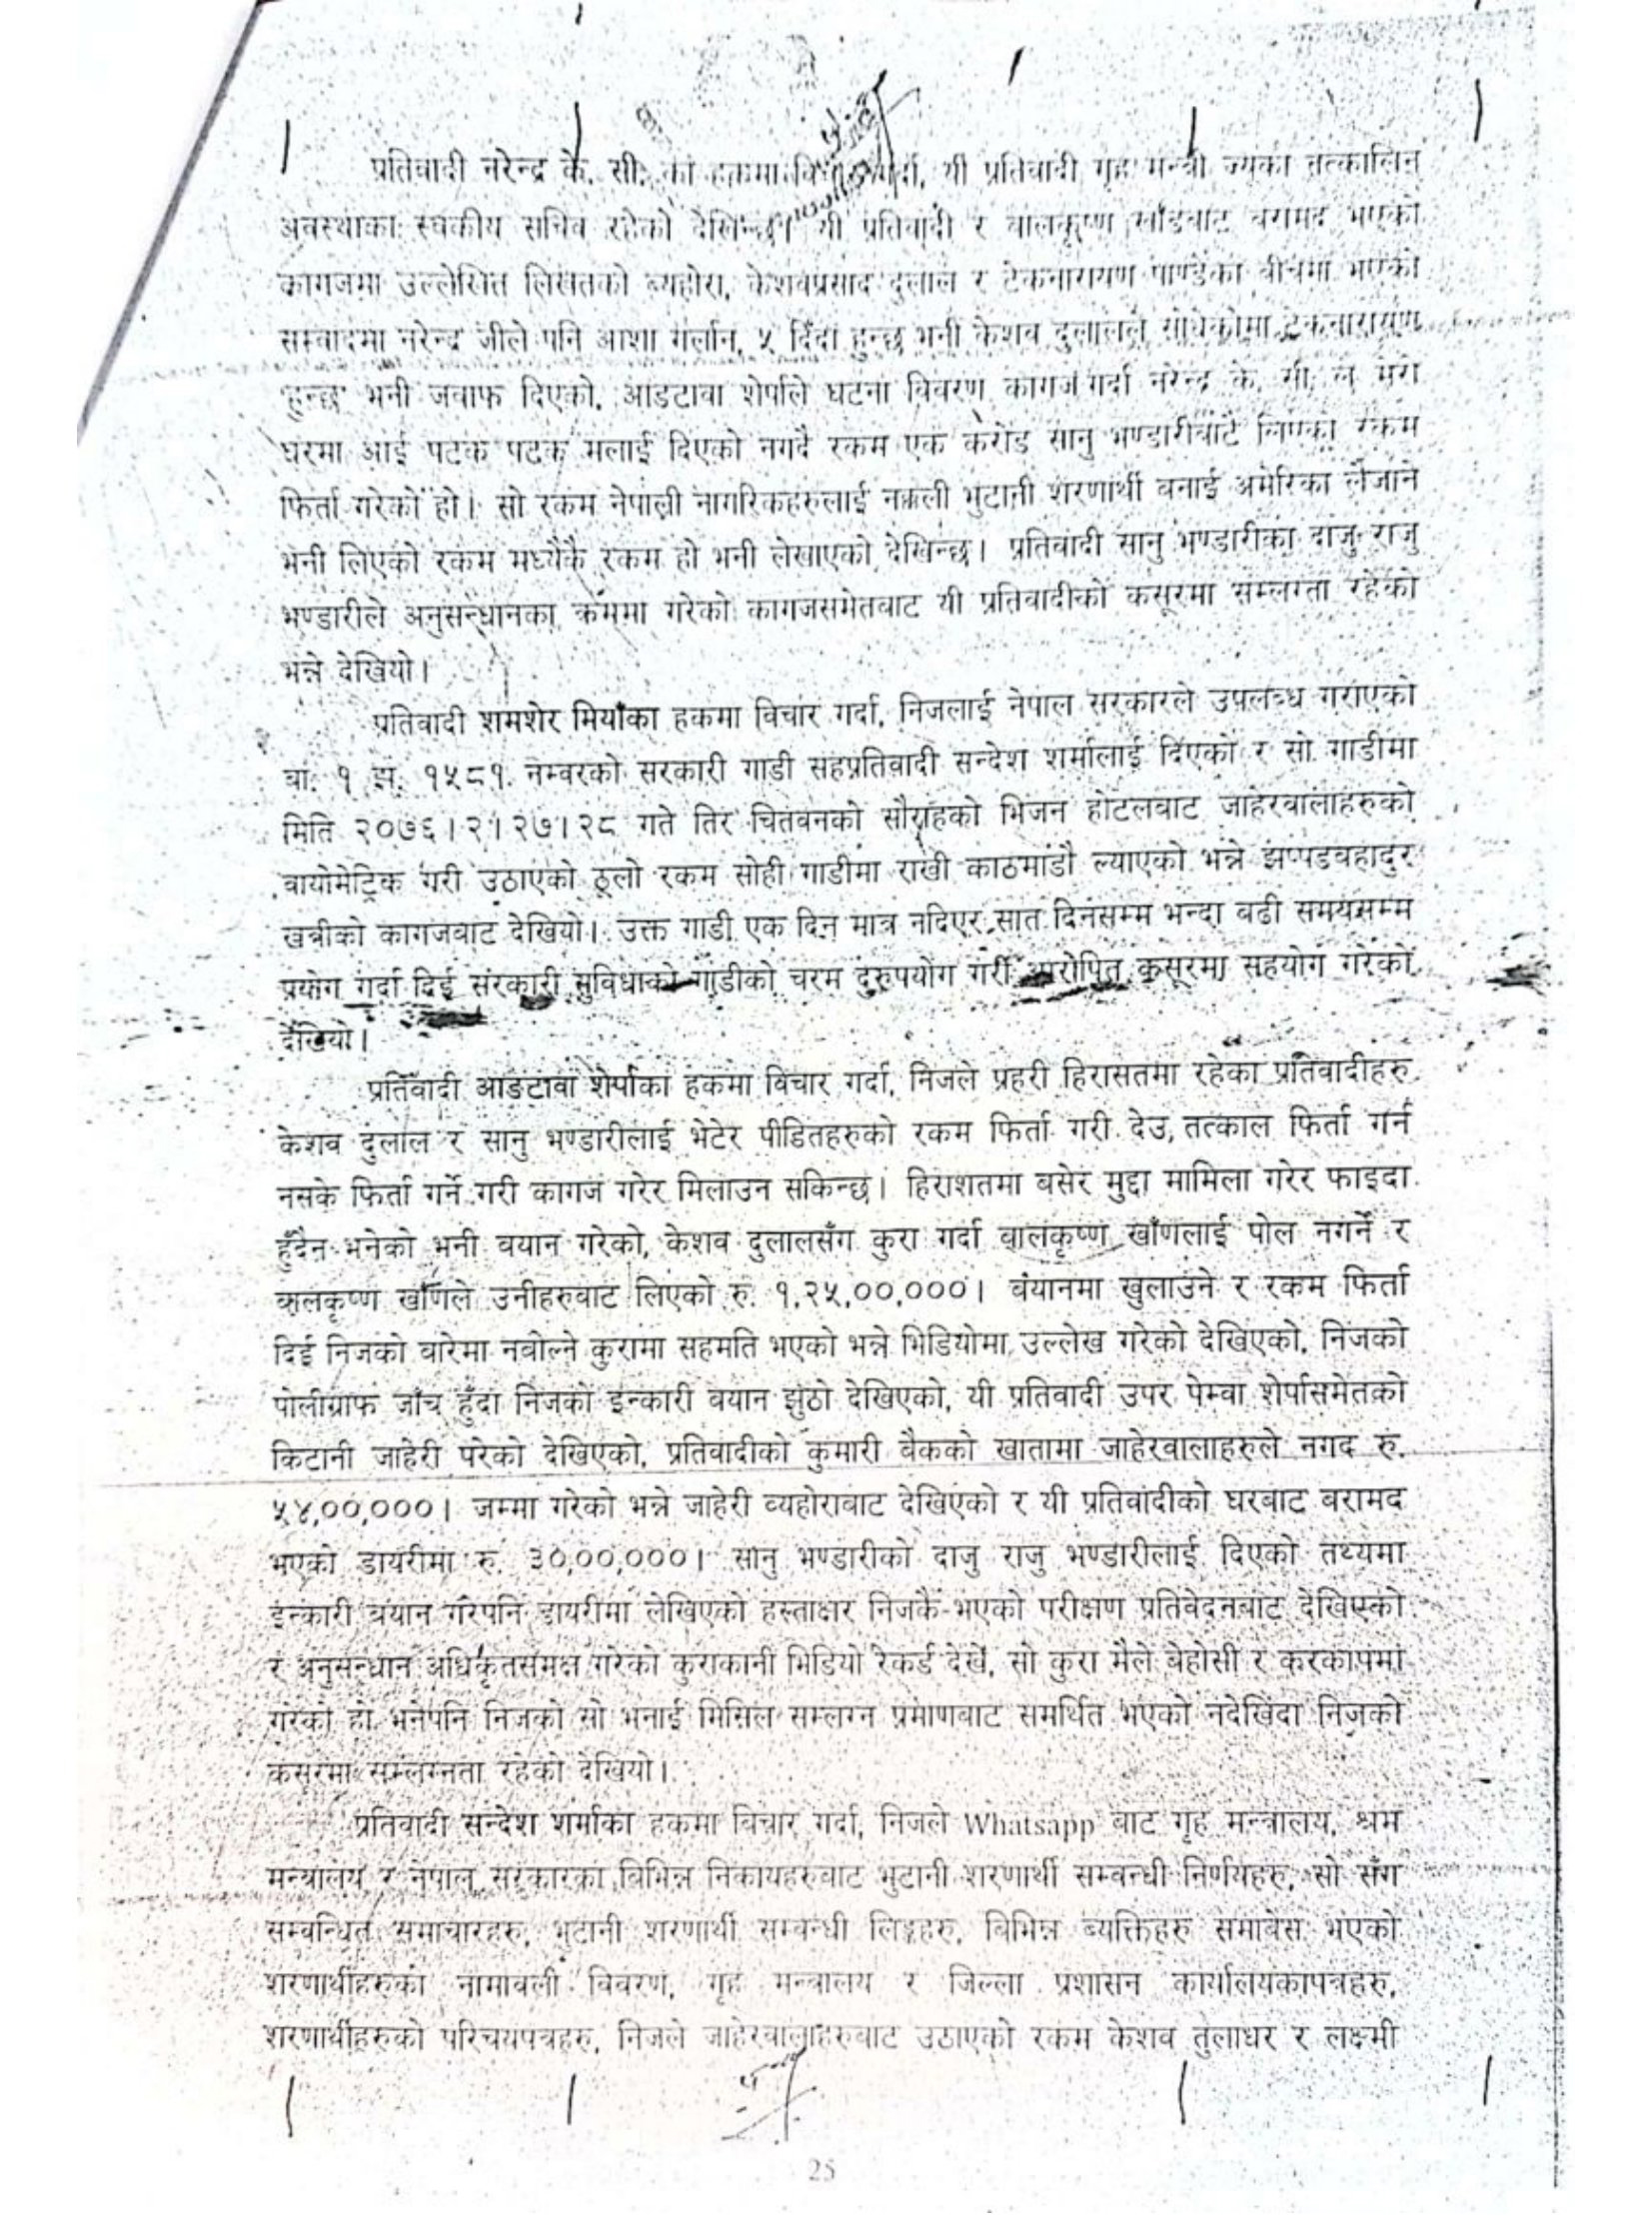 प्रतिवादी नरेन्द्र के. सी. का हकमा गर्दा, यी प्रतिवादी गृह मन्त्री ज्यूका तत्कालिन
अवस्थाका स्वकीय सचिव रहेको देखिन्छ। यी प्रतिवादी र बालकृष्ण खाँडबाट बरामद भएको
कागजमा उल्लेखित लिखतको व्यहोरा, केशवप्रसाद दुलाल र टेकनारायण पाण्डेका बीचमा भएको
सम्वादमा नरेन्द्र जीले पनि आशा गर्लान, ५ दिँदा हुन्छ भनी केशव दुलालले सोधेकोमा टेकनारायण
हुन्छ भनी जवाफ दिएको, आङटावा शेर्पाले घटना विवरण कागज गर्दा नरेन्द्र के. सी. ले मेरो
घरमा आई पटक पटक मलाई दिएको नगदै रकम एक करोड सानु भण्डारीबाट लिएको रकम
फिर्ता गरेको हो। सो रकम नेपाली नागरिकहरुलाई नक्कली भुटानी शरणार्थी बनाई अमेरिका लैजाने
भनी लिएको रकम मध्यैकै रकम हो भनी लेखाएको देखिन्छ। प्रतिवादी सानु भण्डारीका दाजु राजु
भण्डारीले अनुसन्धानका क्रममा गरेको कागजसमेतबाट यी प्रतिवादीको कसूरमा सम्लग्ता रहेको
भन्ने देखियो।
प्रतिवादी शमशेर मियाँका हकमा विचार गर्दा, निजलाई नेपाल सरकारले उपलब्ध गराएको
बा. १ झ. १५८१ नम्बरको सरकारी गाडी सहप्रतिवादी सन्देश शर्मालाई दिएको र सो गाडीमा
मिति २०७६।२।२७।२८ गते तिर चितवनको सौराहको भिजन होटलबाट जाहेरवालाहरुको
बायोमेट्रिक गरी उठाएको ठूलो रकम सोही गाडीमा राखी काठमाडौ ल्याएको भन्ने झप्पडबहादुर
खत्रीको कागजबाट देखियो। उक्त गाडी एक दिन मात्र नदिएर सात दिनसम्म भन्दा बढी समयसम्म
प्रयोग गर्दा दिई सरकारी सुविधाको गाडीको चरम दुरुपयोग गरी आरोपित कसूरमा सहयोग गरेको
देखियो।
प्रतिवादी आङटावा शेर्पाका हकमा विचार गर्दा, निजले प्रहरी हिरासतमा रहेका प्रतिवादीहरु
केशव दुलाल र सानु भण्डारीलाई भेटेर पीडितहरुको रकम फिर्ता गरी देउ, तत्काल फिर्ता गर्न
नसके फिर्ता गर्ने गरी कागज गरेर मिलाउन सकिन्छ। हिराशतमा बसेर मुद्दा मामिला गरेर फाइदा
हुँदैन भनेको भनी बयान गरेको, केशव दुलालसँग कुरा गर्दा बालकृष्ण खाँणलाई पोल नगर्ने र
बालकृष्ण खाँणले उनीहरुबाट लिएको रु. १,२५,००,०००। बयानमा खुलाउने र रकम फिर्ता
दिई निजको बारेमा नबोल्ने कुरामा सहमति भएको भन्ने भिडियोमा उल्लेख गरेको देखिएको, निजको
पोलीग्राफ जाँच हुँदा निजको इन्कारी बयान झुठो देखिएको, यी प्रतिवादी उपर पेम्वा शेर्पासमेतको
किटानी जाहेरी परेको देखिएको, प्रतिवादीको कुमारी बैकको खातामा जाहेरवालाहरुले नगद रु.
५४,००,०००। जम्मा गरेको भन्ने जाहेरी व्यहोराबाट देखिएको र यी प्रतिवादीको घरबाट बरामद
भएको डायरीमा रु. ३०,००,०००। सानु भण्डारीको दाजु राजु भण्डारीलाई दिएको तथ्यमा
इन्कारी बयान गरेपनि डायरीमा लेखिएको हस्ताक्षर निजकै भएको परीक्षण प्रतिवेदनबाट देखिएको
र अनुसन्धान अधिकृतसमक्ष गरेको कुराकानी भिडियो रेकर्ड देखें, सो कुरा मैले बेहोसी र करकापमा
गरेको हो भनेपनि निजको सो भनाई मिसिल सम्लग्न प्रमाणबाट समर्थित भएको नदेखिंदा निजको
कसूरमा सम्लग्नता रहेको देखियो।
प्रतिवादी सन्देश शर्माका हकमा विचार गर्दा, निजले Whatsapp बाट गृह मन्त्रालय, श्रम
मन्त्रालय र नेपाल सरकारका विभिन्न निकायहरुबाट भुटानी शरणार्थी सम्बन्धी निर्णयहरु, सो सँग
सम्बन्धित समाचारहरु, भुटानी शरणार्थी सम्बन्धी लिङ्कहरु, विभिन्न व्यक्तिहरु समावेस भएको
शरणार्थीहरुको नामावली विवरण, गृह मन्त्रालय र जिल्ला प्रशासन कार्यालयकापत्रहरु,
शरणार्थीहरुको परिचयपत्रहरु, निजले जाहेरवालाहरुबाट उठाएको रकम केशव तुलाधर र लक्ष्मी
25